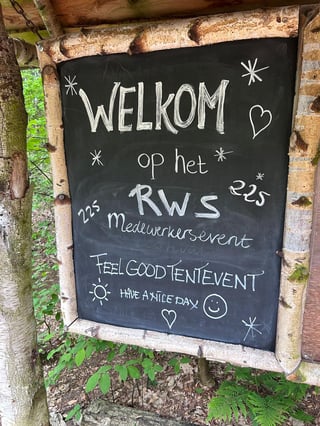 WELKOM
op het
RWS
225
225
Medewerkersevent
FEEL GOOD TENTEVENT
HAVE A NICE DAY